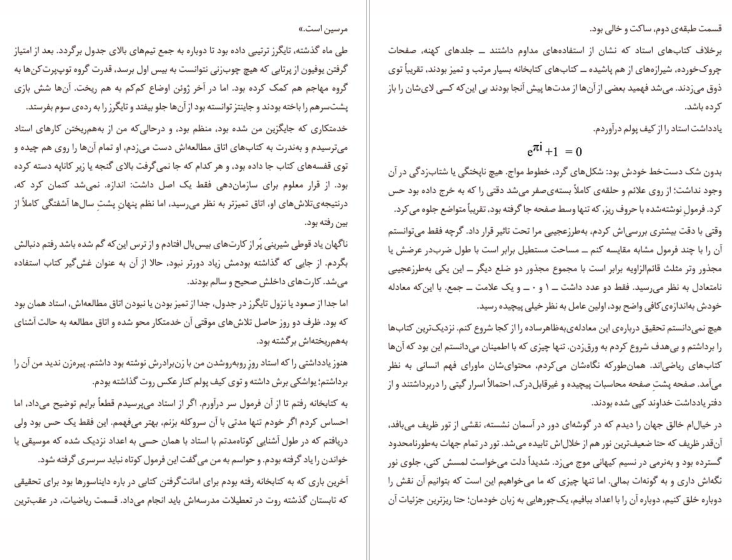 مرسین است.»
طی ماه گذشته، تایگرز ترتیبی داده بود تا دوباره به جمع تیم‌های بالای جدول برگردد. بعد از امتیاز
گرفتن یوفیون از پرتابی که هیچ چوب‌زنی نتوانست به بیس اول برسد، قدرت گروه توپ‌پرت‌کن‌ها به
گروه مهاجم هم کمک کرده بود. اما در آخر ژوئن اوضاع کم‌کم به هم ریخت. آن‌ها شش بازی
پشت‌سرهم را باخته بودند و جاینتز توانسته بود از آن‌ها جلو بیفتد و تایگرز را به رده‌ی سوم بفرستد.
خدمتکاری که جایگزین من شده بود، منظم بود، و درحالی‌که من از به‌هم‌ریختن کارهای استاد
می‌ترسیدم و به‌ندرت به کتاب‌های اتاق مطالعه‌اش دست می‌زدم، او تمام آن‌ها را روی هم چیده و
توی قفسه‌های کتاب جا داده بود، و هر کدام که جا نمی‌گرفت بالای گنجه یا زیر کاناپه دسته کرده
بود. از قرار معلوم برای سازمان‌دهی فقط یک اصل داشت: اندازه. نمی‌شد کتمان کرد که،
درنتیجه‌ی‌تلاش‌های او، اتاق تمیزتر به نظر می‌رسید، اما نظم پنهانِ پشتِ سال‌ها آشفتگی کاملاً از
بین رفته بود.
ناگهان یاد قوطی شیرینی پُر از کارت‌های بیس‌بال افتادم و از ترس این‌که گم شده باشد رفتم دنبالش
بگردم. از جایی که گذاشته بودمش زیاد دورتر نبود، حالا از آن به عنوان غش‌گیر کتاب استفاده
می‌شد. کارت‌های داخلش صحیح و سالم بودند.
اما جدا از صعود یا نزول تایگرز در جدول، جدا از تمیز بودن یا نبودن اتاق مطالعه‌اش، استاد همان بود
که بود. ظرف دو روز حاصل تلاش‌های موقتی آن خدمتکار محو شده و اتاق مطالعه به حالت آشنای
به‌هم‌ریخته‌اش برگشته بود.
هنوز یادداشتی را که استاد روز روبه‌روشدن من با زن‌برادرش نوشته بود داشتم. پیره‌زن ندید من آن را
برداشتم؛ یواشکی برش داشته و توی کیف پولم کنار عکس روت گذاشته بودم.
به کتابخانه رفتم تا از آن فرمول سر درآورم. اگر از استاد می‌پرسیدم قطعاً برایم توضیح می‌داد، اما
احساس کردم اگر خودم تنها مدتی با آن سروکله بزنم، بهتر می‌فهمم. این فقط یک حس بود ولی
دریافتم که در طول آشنایی کوتاه‌مدتم با استاد با همان حسی به اعداد نزدیک شده که موسیقی یا
خواندن را یاد گرفته بودم. و حواسم به من می‌گفت این فرمول کوتاه نباید سرسری گرفته شود.
آخرین باری که به کتابخانه رفته بودم برای امانت‌گرفتن کتابی در باره دایناسورها بود برای تحقیقی
که تابستان گذشته روت در تعطیلات مدرسه‌اش باید انجام می‌داد. قسمت ریاضیات، در عقب‌ترین
قسمت طبقه‌ی دوم، ساکت و خالی بود.
برخلاف کتاب‌های استاد که نشان از استفاده‌های مداوم داشتند ــ جلدهای کهنه، صفحات
چروک‌خورده، شیرازه‌های از هم پاشیده ــ کتاب‌های کتابخانه بسیار مرتب و تمیز بودند، تقریباً توی
ذوق می‌زدند. می‌شد فهمید بعضی از آن‌ها از مدت‌ها پیش آنجا بودند بی این‌که کسی لای‌شان را باز
کرده باشد.
یادداشت استاد را از کیف پولم درآوردم.
e^πi +1 = 0
بدون شک دست‌خط خودش بود: شکل‌های گرد، خطوط مواج. هیچ ناپختگی یا شتاب‌زدگی در آن
وجود نداشت؛ از روی علائم و حلقه‌ی کاملاً بسته‌ی‌صفر می‌شد دقتی را که به خرج داده بود حس
کرد. فرمول نوشته‌شده با حروف ریز، که تنها وسط صفحه جا گرفته بود، تقریباً متواضع جلوه می‌کرد.
وقتی با دقت بیشتری بررسی‌اش کردم، به‌طرزعجیبی مرا تحت تاثیر قرار داد. گرچه فقط می‌توانستم
آن را با چند فرمول مشابه مقایسه کنم ــ مساحت مستطیل برابر است با طول ضرب‌در عرضش یا
مجذور وتر مثلث قائم‌الزاویه برابر است با مجموع مجذور دو ضلع دیگر ــ این یکی به‌طرزعجیبی
نامتعادل به نظر می‌رسید. فقط دو عدد داشت ــ ۱ و ۰ ــ و یک علامت ــ جمع. با این‌که معادله
خودش به‌اندازه‌ی‌کافی واضح بود، اولین عامل به نظر خیلی پیچیده رسید.
هیچ نمی‌دانستم تحقیق درباره‌ی این معادله‌ی‌به‌ظاهرساده را از کجا شروع کنم. نزدیک‌ترین کتاب‌ها
را برداشتم و بی‌هدف شروع کردم به ورق‌زدن. تنها چیزی که با اطمینان می‌دانستم این بود که آن‌ها
کتاب‌های ریاضی‌اند. همان‌طورکه نگاه‌شان می‌کردم، محتوای‌شان ماورای فهم انسانی به نظر
می‌آمد. صفحه پشتِ صفحه محاسبات پیچیده و غیرقابل‌درک، احتمالاً اسرار گیتی را دربرداشتند و از
دفتر یادداشت خداوند کپی شده بودند.
در خیال‌ام خالق جهان را دیدم که در گوشه‌ای دور در آسمان نشسته، نقشی از تور ظریف می‌بافد،
آن‌قدر ظریف که حتا ضعیف‌ترین نور هم از خلال‌اش تابیده می‌شد. تور در تمام جهات به‌طورنامحدود
گسترده بود و به‌نرمی در نسیم کیهانی موج می‌زد. شدیداً دلت می‌خواست لمسش کنی، جلوی نور
نگه‌اش داری و به گونه‌ات بمالی. اما تنها چیزی که ما می‌خواهیم این است که بتوانیم آن نقش را
دوباره خلق کنیم، دوباره آن را با اعداد ببافیم، یک‌جورهایی به زبان خودمان؛ حتا ریزترین جزئیات آن